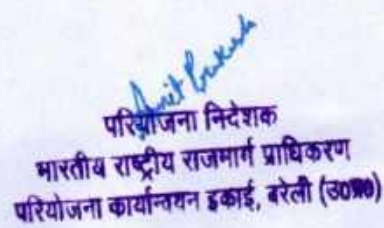 परियोजना निदेशक
भारतीय राष्ट्रीय राजमार्ग प्राधिकरण
परियोजना कार्यान्वयन इकाई, बरेली (उ०प्र०)